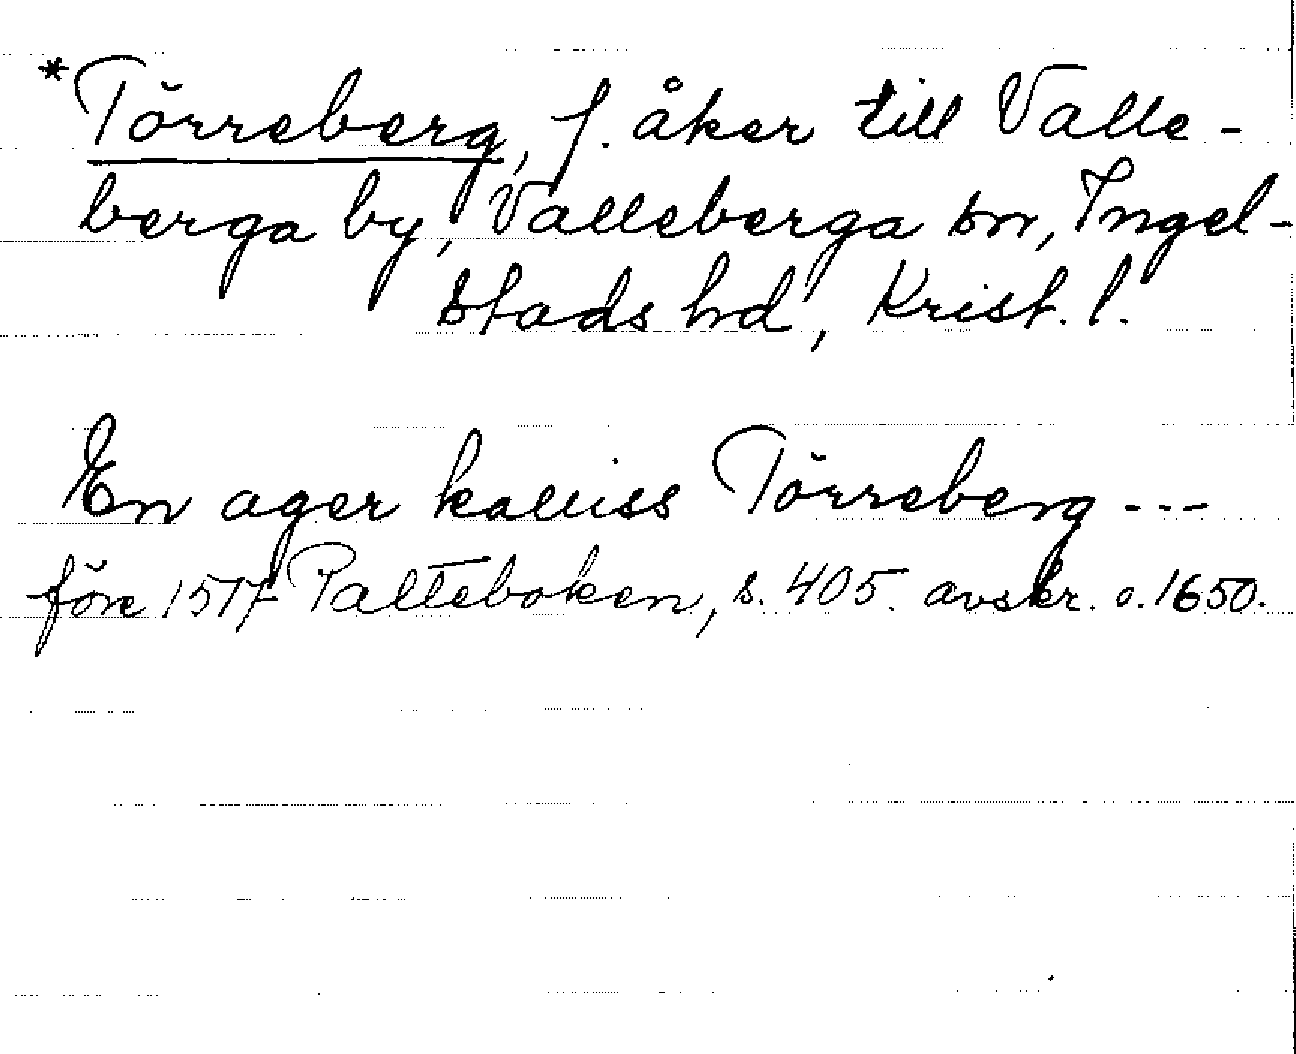 *Törreberg, f. åker till Valle-
berga by, Valleberga sn, Ingel-
stads hd, Krist. l.
En ager kalliss Törreberg ---
före 1517 Palteboken, s. 405. avskr. o. 1650.